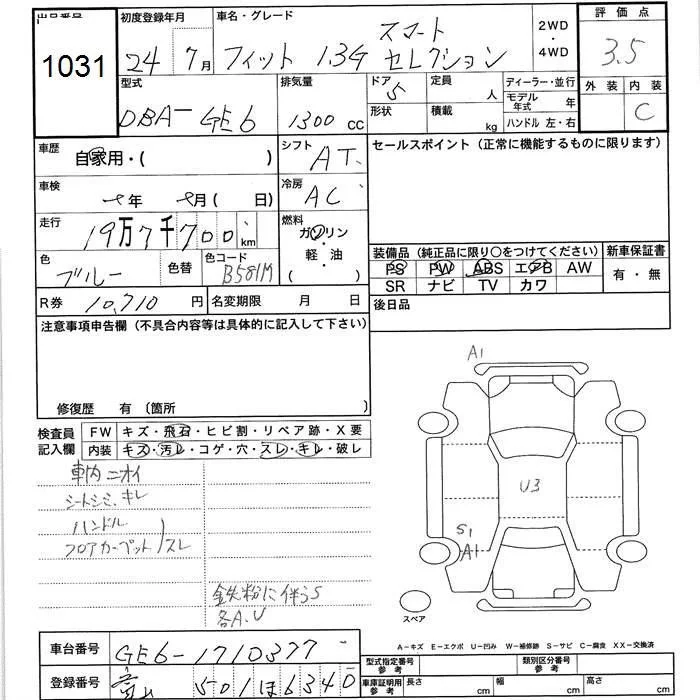 出品番号
1031
初度登録年月
24年 7月
車名・グレード
フィット 1.3G スマートセレクション
2WD
・
4WD
評価点
3.5
外装 内装
C
型式
DBA-GE6
排気量
1300 cc
ドア
5
形状
定員
人
積載
kg
ディーラー・並行
モデル年式 年
ハンドル 左・右
車歴
自家用・( )
シフト
AT
セールスポイント(正常に機能するものに限ります)
車検
年 月( 日)
冷房
AC
走行
19万7千700km
燃料
ガソリン
・
軽・油
( )
色
ブルー
色替
色コード
B581M
装備品(純正品に限り〇をつけてください)
新車保証書
PS PW ABS エアB AW
SR ナビ TV カワ
有・無
R券 10,710円
名変期限 月 日
後日品
注意事項申告欄(不具合内容等は具体的に記入して下さい)
修復歴 有〔箇所 〕
検査員記入欄
FW キズ・飛石・ヒビ割・リペア跡・X要
内装 キズ・汚レ・コゲ・穴・スレ・キレ・破レ
車内ニオイ
シートシミ、キレ
ハンドル
フロアカーペット スレ
鉄粉に伴うS
各A.U
A1
U3
S1
A1
スペア
A-キズ E-エクボ U-凹み W-補修跡 S-サビ C-腐食 XX-交換済
車台番号
GE6-1710377
登録番号
501 ほ 6340
型式指定番号 参考
類別区分番号 参考
車庫証明用 参考
長さ cm
幅 cm
高さ cm